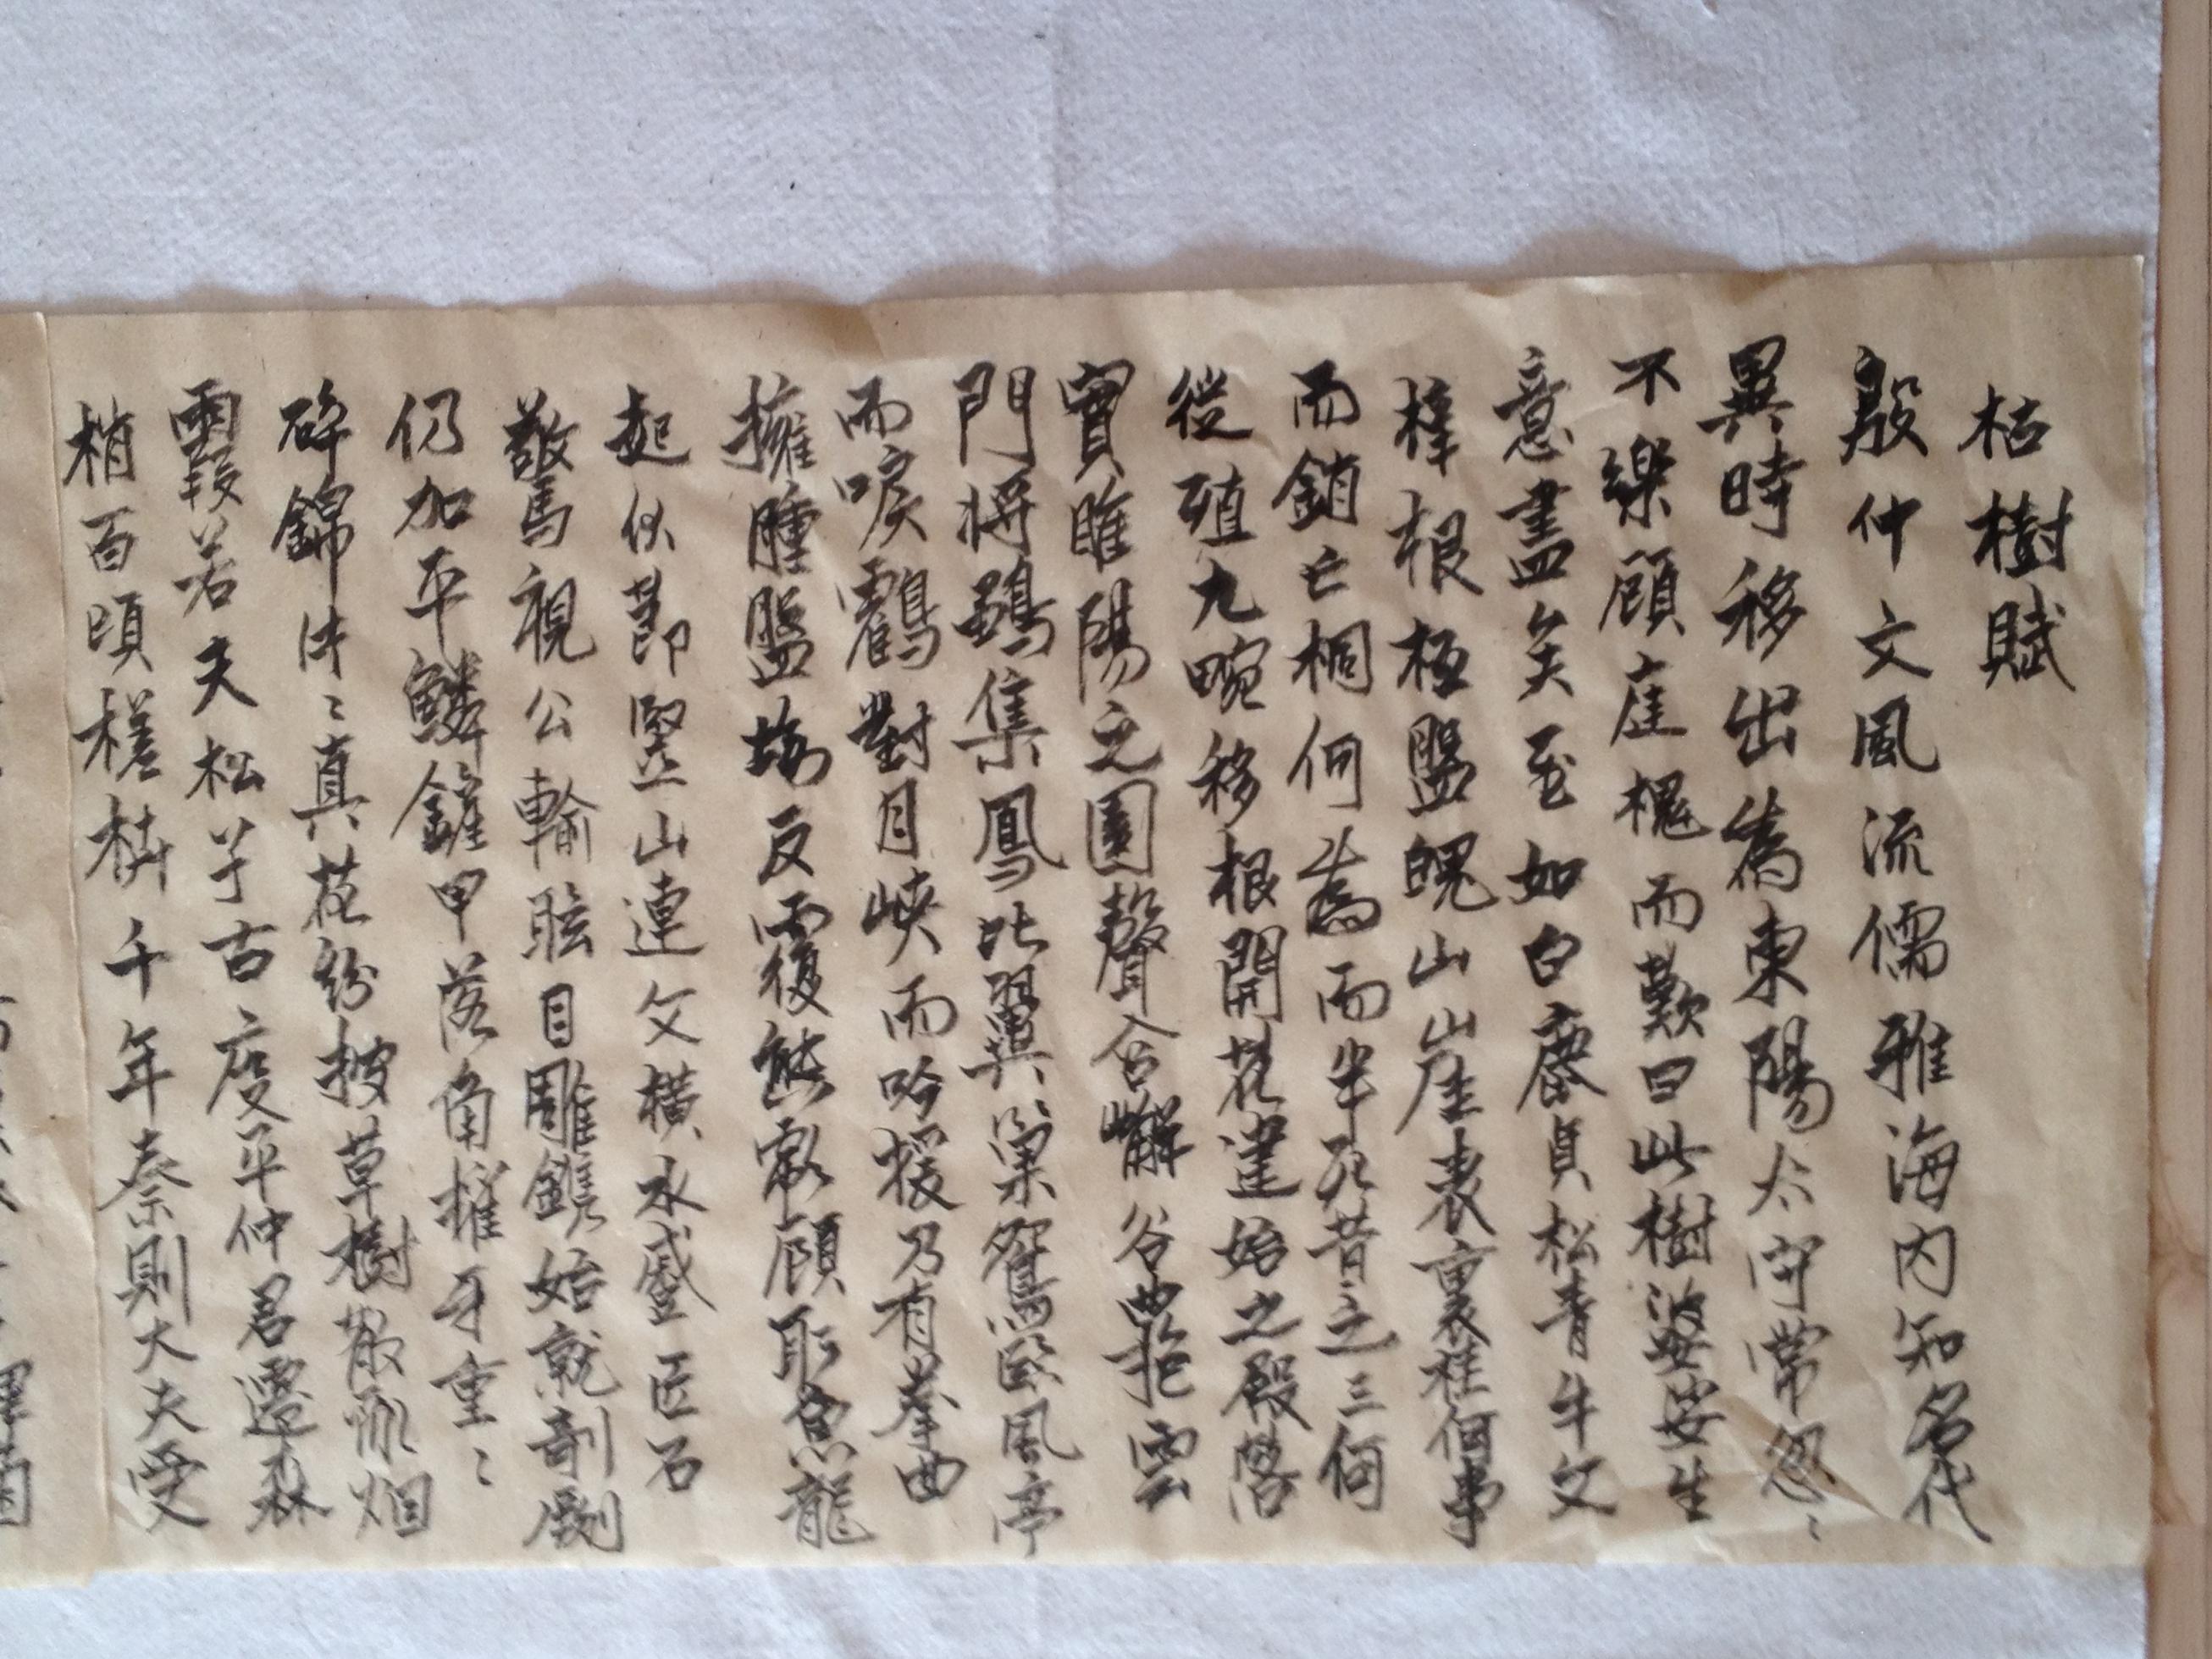 枯樹賦
殷仲文風流儒雅海内知名代
異時移出為東陽太守常忽〻
不樂顧庭槐而歎曰此樹婆娑生
意盡矣至如白鹿貞松青牛文
梓根柢盤魄山崖表裏桂何事
而銷亡桐何為而半死昔之三何
從殖九畹移根開花建始之殿落
實睢陽之園聲含嶰谷曲抱雲
門将鶵集鳳比翼巢鴛臨風亭
而唳鶴對月峽而吟猨乃有拳曲
擁腫盤坳反覆熊彪顧眄魚龍
起伏節竪山連文橫水蹙匠石
驚視公輸眩目雕鐫始就剞劂
仍加平鱗鏟甲落角摧牙重〻
碎錦片〻真花紛披草樹散亂烟
霞若夫松子古度平仲君遷森
梢百頃槎枿千年秦則大夫受